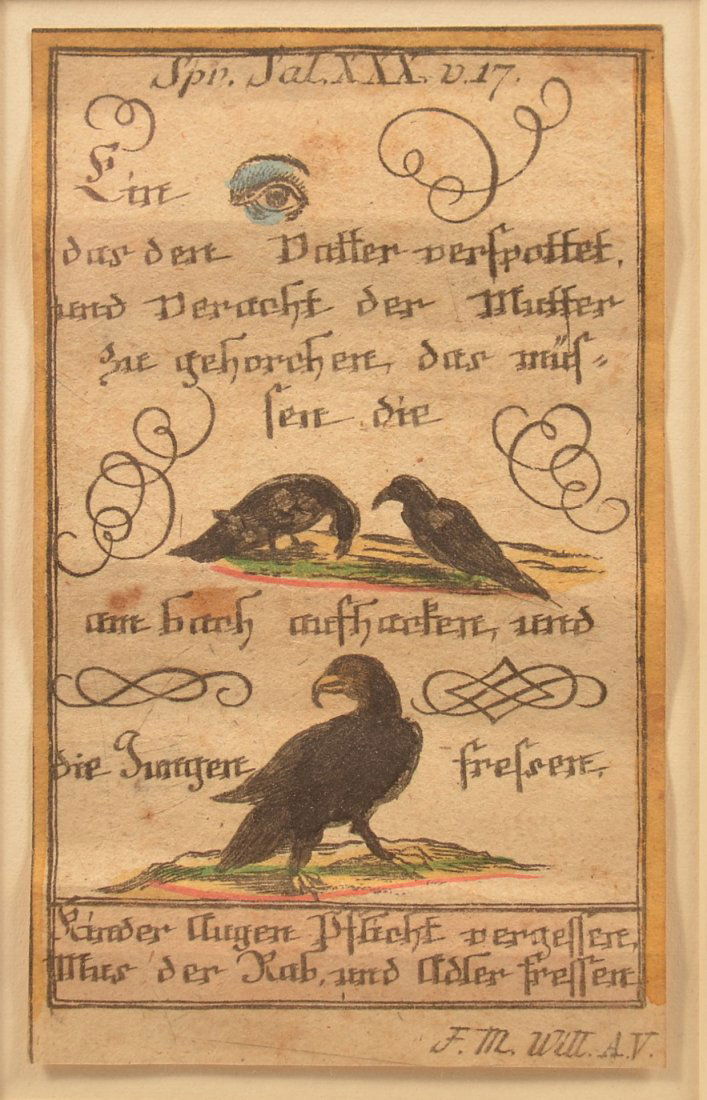 Spr. Sal. XXX. v. 17.
Ein
das den Vatter verspottet,
und veracht der Mutter
zu gehorchen, das müs-
sen die
am bach aufhacken, und
die Jungen fressen.
Kinder Augen Pflicht vergessen,
Mus der Rab, und Adler fressen
F. M. Will. A.V.